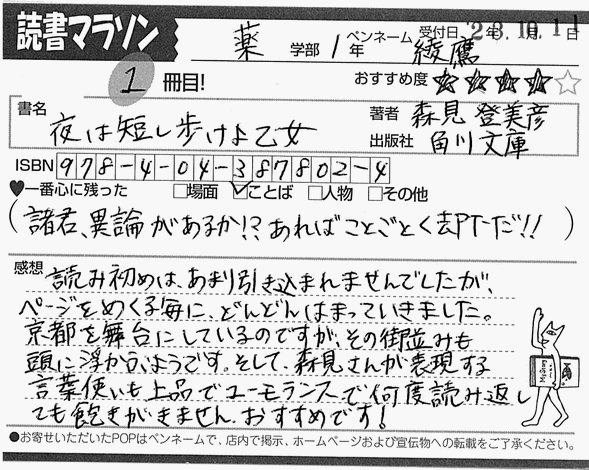 読書マラソン
薬 学部 1年 ペンネーム 綾鷹 受付日 '23.10.11日
1 冊目! おすすめ度 ★★★★☆
書名 夜は短し歩けよ乙女
著者 森見 登美彦
出版社 角川文庫
ISBN 978-4-04-387802-4
♥一番心に残った □場面 ☑ことば □人物 □その他
(諸君、異論があるか!? あればことごとく却下だ!!)
感想 読み初めは、あまり引き込まれませんでしたが、
ページをめくる毎に、どんどんはまっていきました。
京都を舞台にしているのですが、その街並みも
頭に浮かぶようです。そして、森見さんが表現する
言葉使いも上品でユーモランスで何度読み返し
ても飽きがきません。おすすめです!
●お寄せいただいたPOPはペンネームで、店内で掲示、ホームページおよび宣伝物への転載をご了承ください。